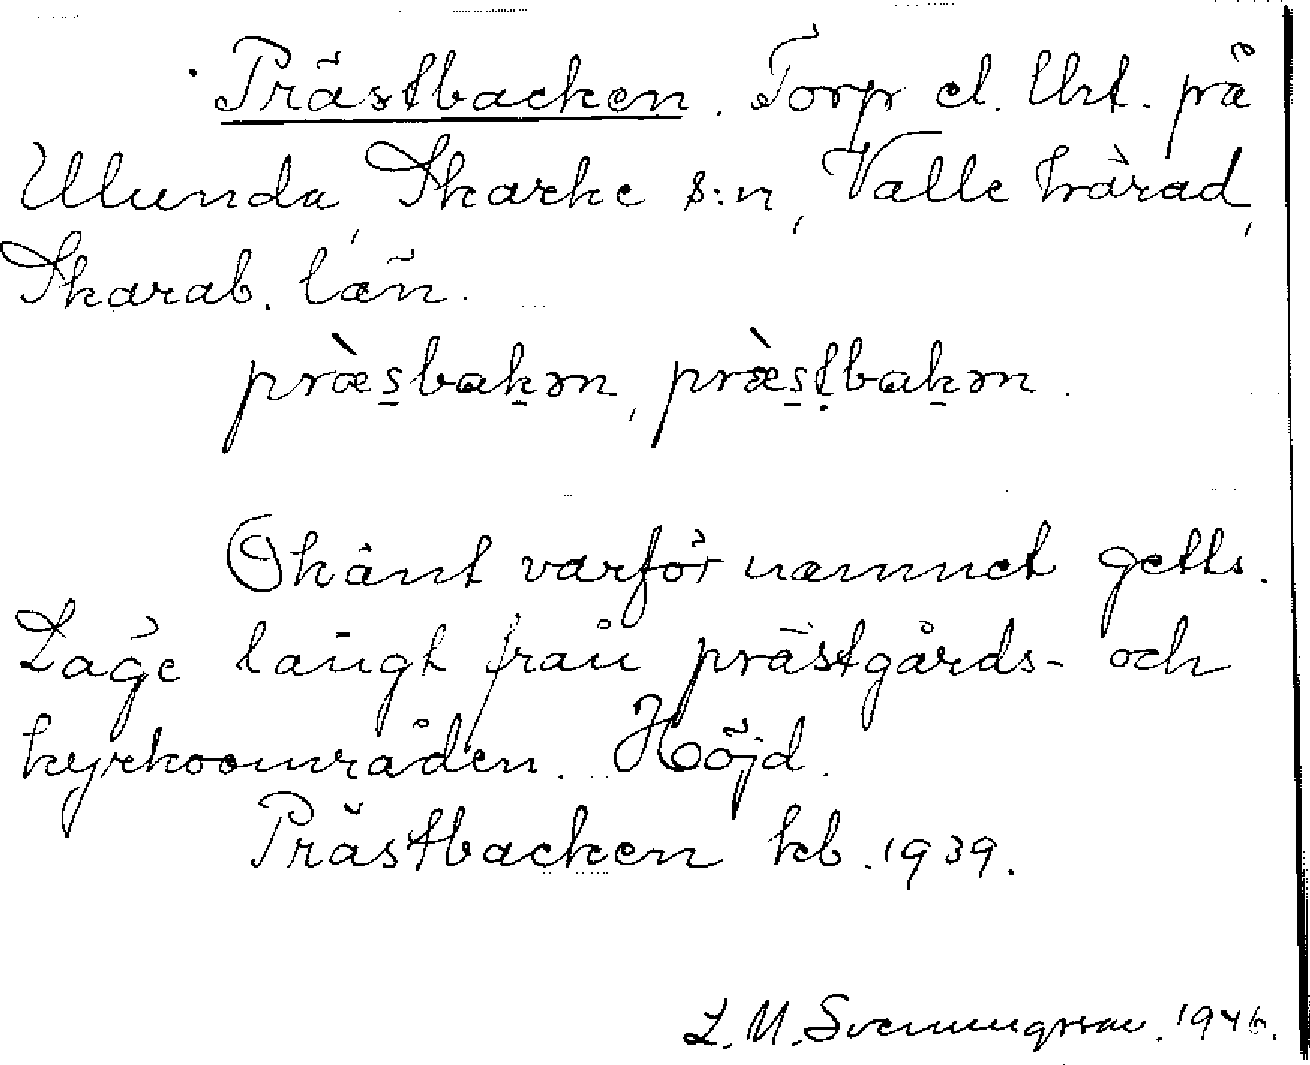 Prästbacken. Torp el. lht. på
Ulunda, Skarke s:n, Valle härad,
Skarab. län.
præ̀sbakən, præ̀stbakən.
Okänt varför namnet getts.
Läge långt från prästgårds- och
kyrkoområden. Höjd.
Prästbacken kb. 1939.
L. M. Svenungsson. 1946.